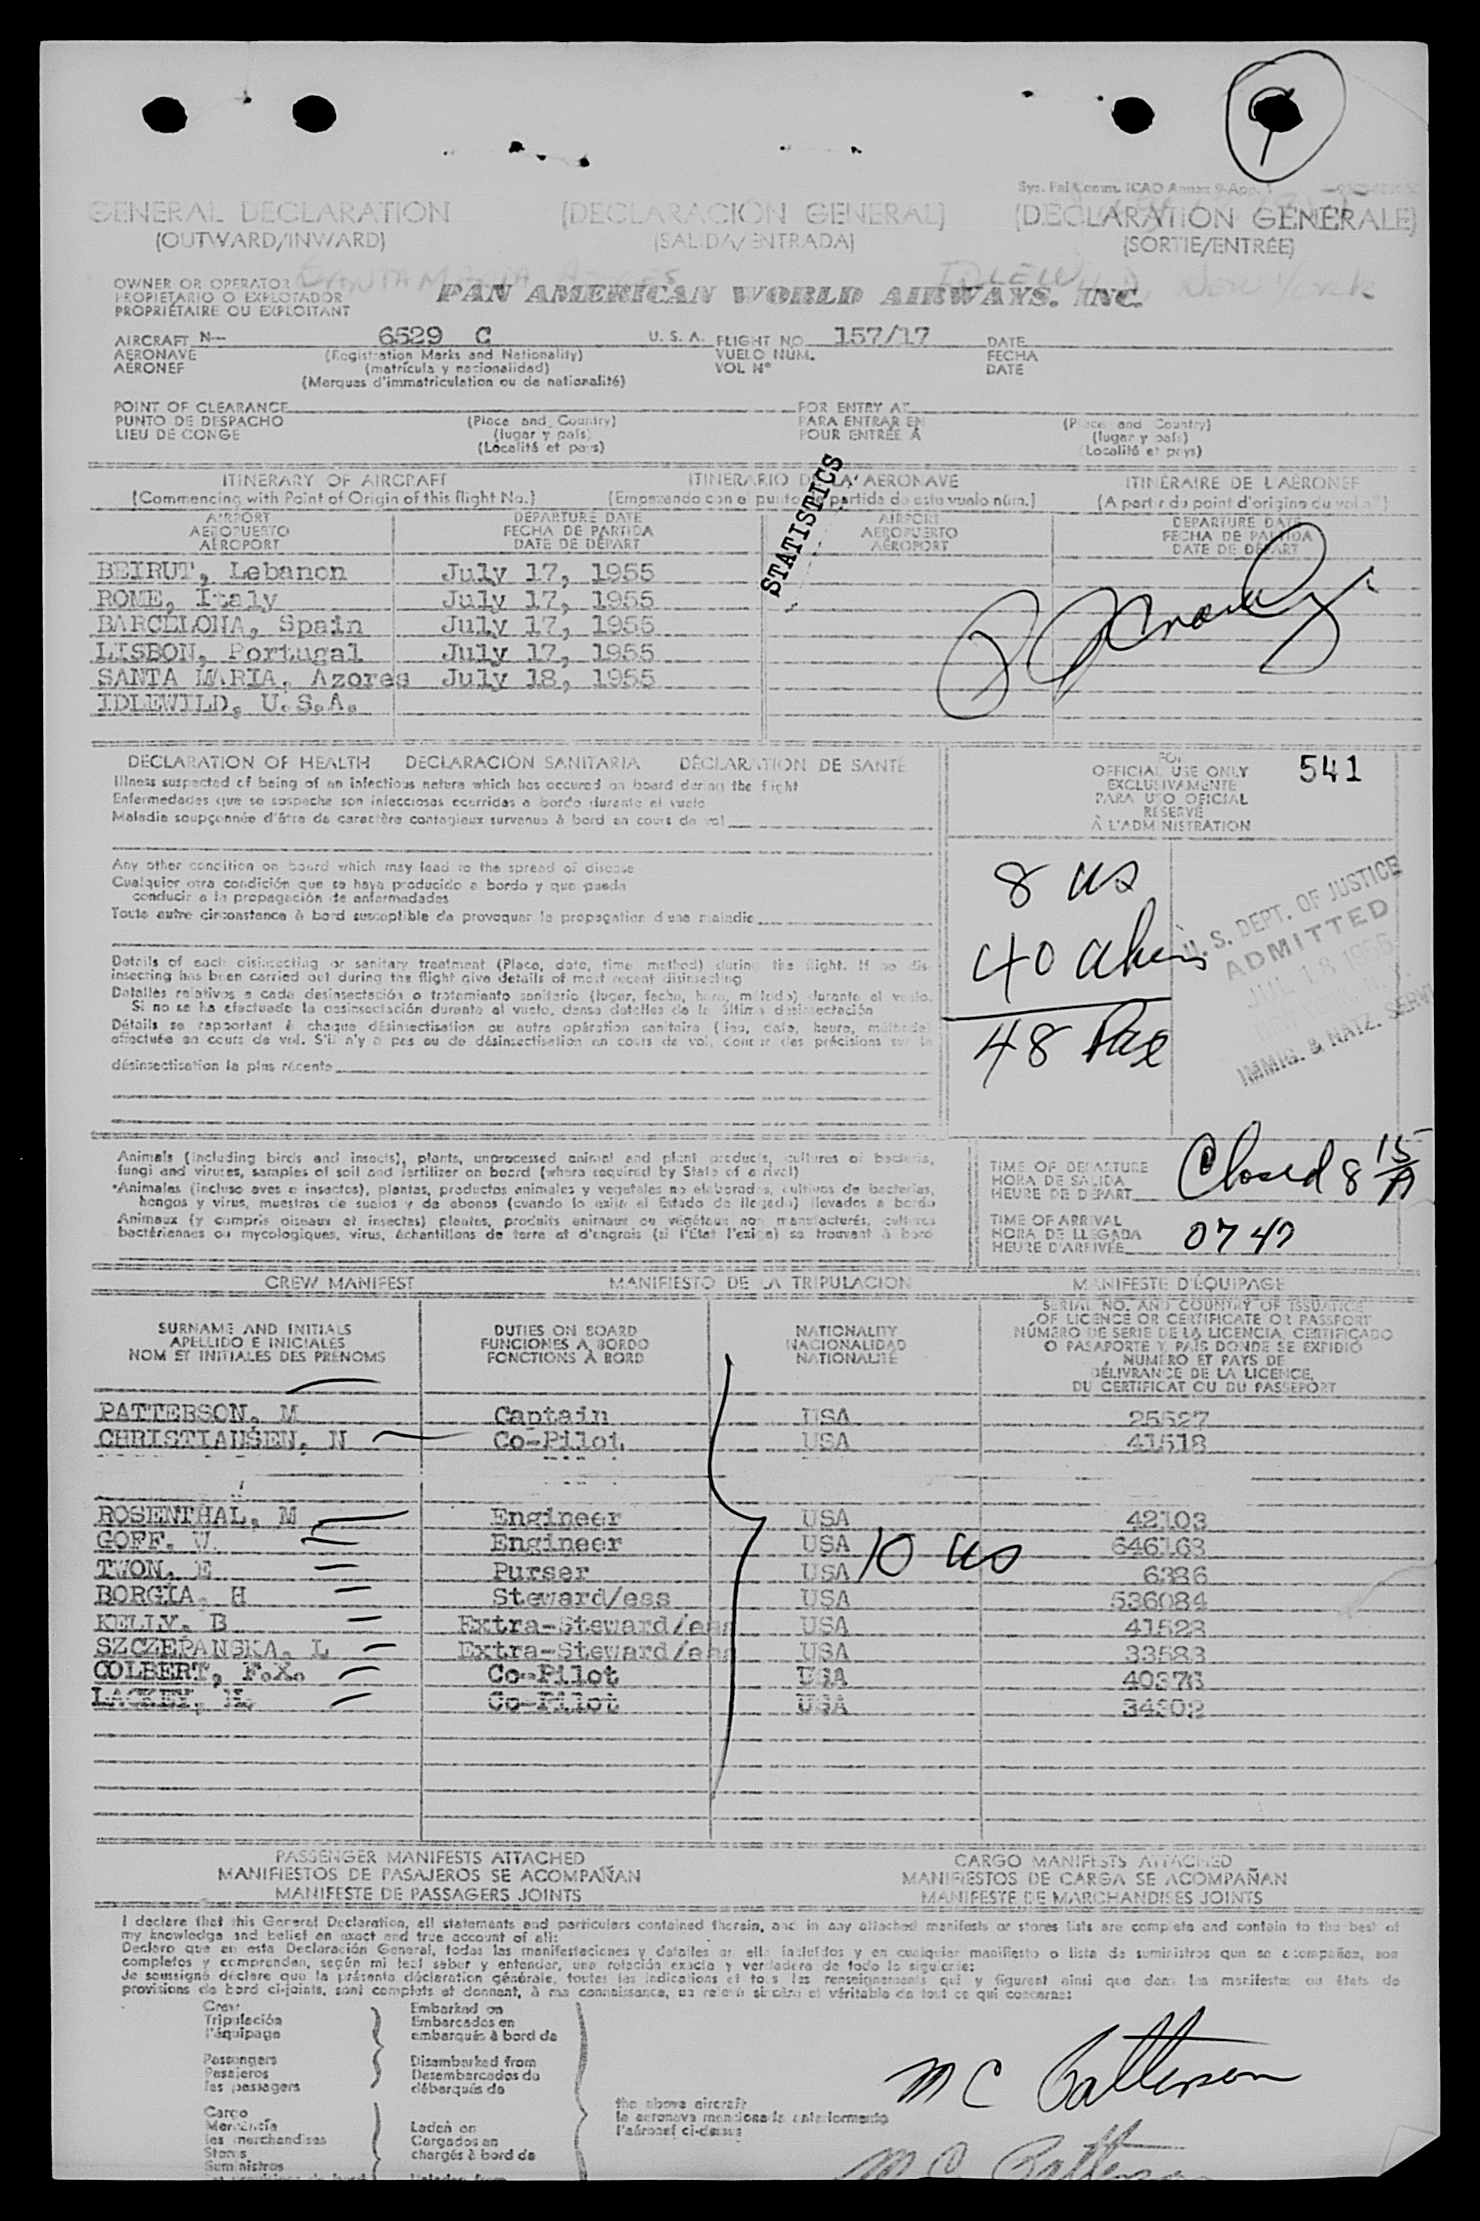 Sys. Fal Comm. ICAO Annex 9-App. 1
GENERAL DECLARATION (DECLARACION GENERAL) (DECLARATION GENERALE)
(OUTWARD/INWARD) (SALIDA/ENTRADA) (SORTIE/ENTRÉE)
SANTA MARIA AZORES IDLEWILD, New York
OWNER OR OPERATOR
PROPIETARIO O EXPLOTADOR
PROPRIÉTAIRE OU EXPLOITANT
PAN AMERICAN WORLD AIRWAYS. INC.
AIRCRAFT N- 6529 C U. S. A. FLIGHT NO. 157/17 DATE
AERONAVE (Registration Marks and Nationality) VUELO NÚM. FECHA
AÉRONEF (matrícula y nacionalidad) VOL Nº DATE
(Marques d'immatriculation ou de nationalité)
POINT OF CLEARANCE FOR ENTRY AT
PUNTO DE DESPACHO (Place and Country) PARA ENTRAR EN (Place and Country)
LIEU DE CONGE (lugar y país) POUR ENTRÉE À (lugar y país)
(Localité et pays) (Localité et pays)
STATISTICS
ITINERARY OF AIRCRAFT ITINERARIO DE LA AERONAVE ITINÉRAIRE DE L'AÉRONEF
(Commencing with Point of Origin of this flight No.) (Empezando con el punto de partida de este vuelo núm.) (A partir du point d'origine du vol nº)
AIRPORT DEPARTURE DATE AIRPORT DEPARTURE DATE
AEROPUERTO FECHA DE PARTIDA AEROPUERTO FECHA DE PARTIDA
AÉROPORT DATE DE DÉPART AÉROPORT DATE DE DÉPART
BEIRUT, Lebanon July 17, 1955
ROME, Italy July 17, 1955
BARCELONA, Spain July 17, 1955
LISBON, Portugal July 17, 1955
SANTA MARIA, Azores July 18, 1955
IDLEWILD, U.S.A.
DECLARATION OF HEALTH DECLARACIÓN SANITARIA DÉCLARATION DE SANTÉ
Illness suspected of being of an infectious nature which has occured on board during the flight
Enfermedades que se sospeche son infecciosas ocurridas a bordo durante el vuelo
Maladie soupçonnée d'être de caractère contagieux survenue à bord en cours de vol
FOR
OFFICIAL USE ONLY
EXCLUSIVAMENTE
PARA USO OFICIAL
RESERVÉ
À L'ADMINISTRATION
541
Any other condition on board which may lead to the spread of disease
Cualquier otra condición que se haya producido a bordo y que pueda
conducir a la propagación de enfermedades
Toute autre circonstance à bord susceptible de provoquer la propagation d'une maladie
8 US
40 aliens
48 Pax
U. S. DEPT. OF JUSTICE
ADMITTED
JUL 18 1955
IMMIG. & NATZ. SERV
Details of each disinsecting or sanitary treatment (Place, date, time method) during the flight. If no dis-
insecting has been carried out during the flight give details of most recent disinsecting
Detalles relativos a cada desinsectación o tratamiento sanitario (lugar, fecha, hora, método) durante el vuelo.
Si no se ha efectuado la desinsectación durante el vuelo, dense detalles de la última desinsectación
Détails se rapportant à chaque désinsectisation ou autre opération sanitaire (lieu, date, heure, méthode)
effectuée en cours de vol. S'il n'y a pas eu de désinsectisation en cours de vol, donner des précisions sur la
désinsectisation la plus récente
Animals (including birds and insects), plants, unprocessed animal and plant products, cultures of bacteria,
fungi and viruses, samples of soil and fertilizer on board (where required by State of arrival)
*Animales (incluso aves e insectos), plantas, productos animales y vegetales no elaborados, cultivos de bacterias,
hongos y virus, muestras de suelos y de abonos (cuando lo exija el Estado de llegada) llevados a bordo
Animaux (y compris oiseaux et insectes) plantes, produits animaux ou végétaux non manufacturés, cultures
bactériennes ou mycologiques, virus, échantillons de terre et d'engrais (si l'État l'exige) se trouvant à bord
TIME OF DEPARTURE
HORA DE SALIDA
HEURE DE DÉPART
Closed 8 15/A
TIME OF ARRIVAL
HORA DE LLEGADA
HEURE D'ARRIVÉE
0747
CREW MANIFEST MANIFIESTO DE LA TRIPULACION MANIFESTE D'ÉQUIPAGE
SURNAME AND INITIALS
APELLIDO E INICIALES
NOM ET INITIALES DES PRENOMS
DUTIES ON BOARD
FUNCIONES A BORDO
FONCTIONS À BORD
NATIONALITY
NACIONALIDAD
NATIONALITÉ
SERIAL NO. AND COUNTRY OF ISSUANCE
OF LICENCE OR CERTIFICATE OR PASSPORT
NÚMERO DE SERIE DE LA LICENCIA, CERTIFICADO
O PASAPORTE Y PAÍS DONDE SE EXPIDIÓ
NUMÉRO ET PAYS DE
DÉLIVRANCE DE LA LICENCE,
DU CERTIFICAT OU DU PASSEPORT
PATTERSON, M Captain USA 25527
CHRISTIANSEN, N Co-Pilot USA 41518
ROSENTHAL, M Engineer USA 42103
GOFF, W. Engineer USA 646163
TWON, E Purser USA 6386
10 US
BORGIA, H Steward/ess USA 536084
KELLY, B Extra-Steward/ess USA 41523
SZCZEPANSKA, L Extra-Steward/ess USA 33583
COLBERT, F.X. Co-Pilot USA 40376
LACKEY, H. Co-Pilot USA 34302
PASSENGER MANIFESTS ATTACHED CARGO MANIFESTS ATTACHED
MANIFIESTOS DE PASAJEROS SE ACOMPAÑAN MANIFIESTOS DE CARGA SE ACOMPAÑAN
MANIFESTE DE PASSAGERS JOINTS MANIFESTE DE MARCHANDISES JOINTS
I declare that this General Declaration, all statements and particulars contained therein, and in any attached manifests or stores lists are complete and contain to the best of
my knowledge and belief an exact and true account of all:
Declaro que en esta Declaración General, todas las manifestaciones y detalles en ella incluidos y en cualquier manifiesto o lista de suministros que se acompañan, son
completos y comprenden, según mi leal saber y entender, una relación exacta y verdadera de todo lo siguiente:
Je soussigné déclare que la présente déclaration générale, toutes les indications et tous les renseignements qui y figurent ainsi que dans les manifestes ou états de
provisions de bord ci-joints, sont complets et donnent, à ma connaissance, un relevé sincère et véritable de tout ce qui concerne:
Crew Embarked on
Tripulación Embarcados en
l'équipage embarqués à bord de
Passengers Disembarked from
Pasajeros Desembarcados de
les passagers débarqués de
M C Patterson
Cargo
Mercancía Laden on
les merchandises Cargados en
Stores chargés à bord de
Suministros
the above aircraft
la aeronave mencionada anteriormente
l'aéronef ci-dessus
M C Patterson